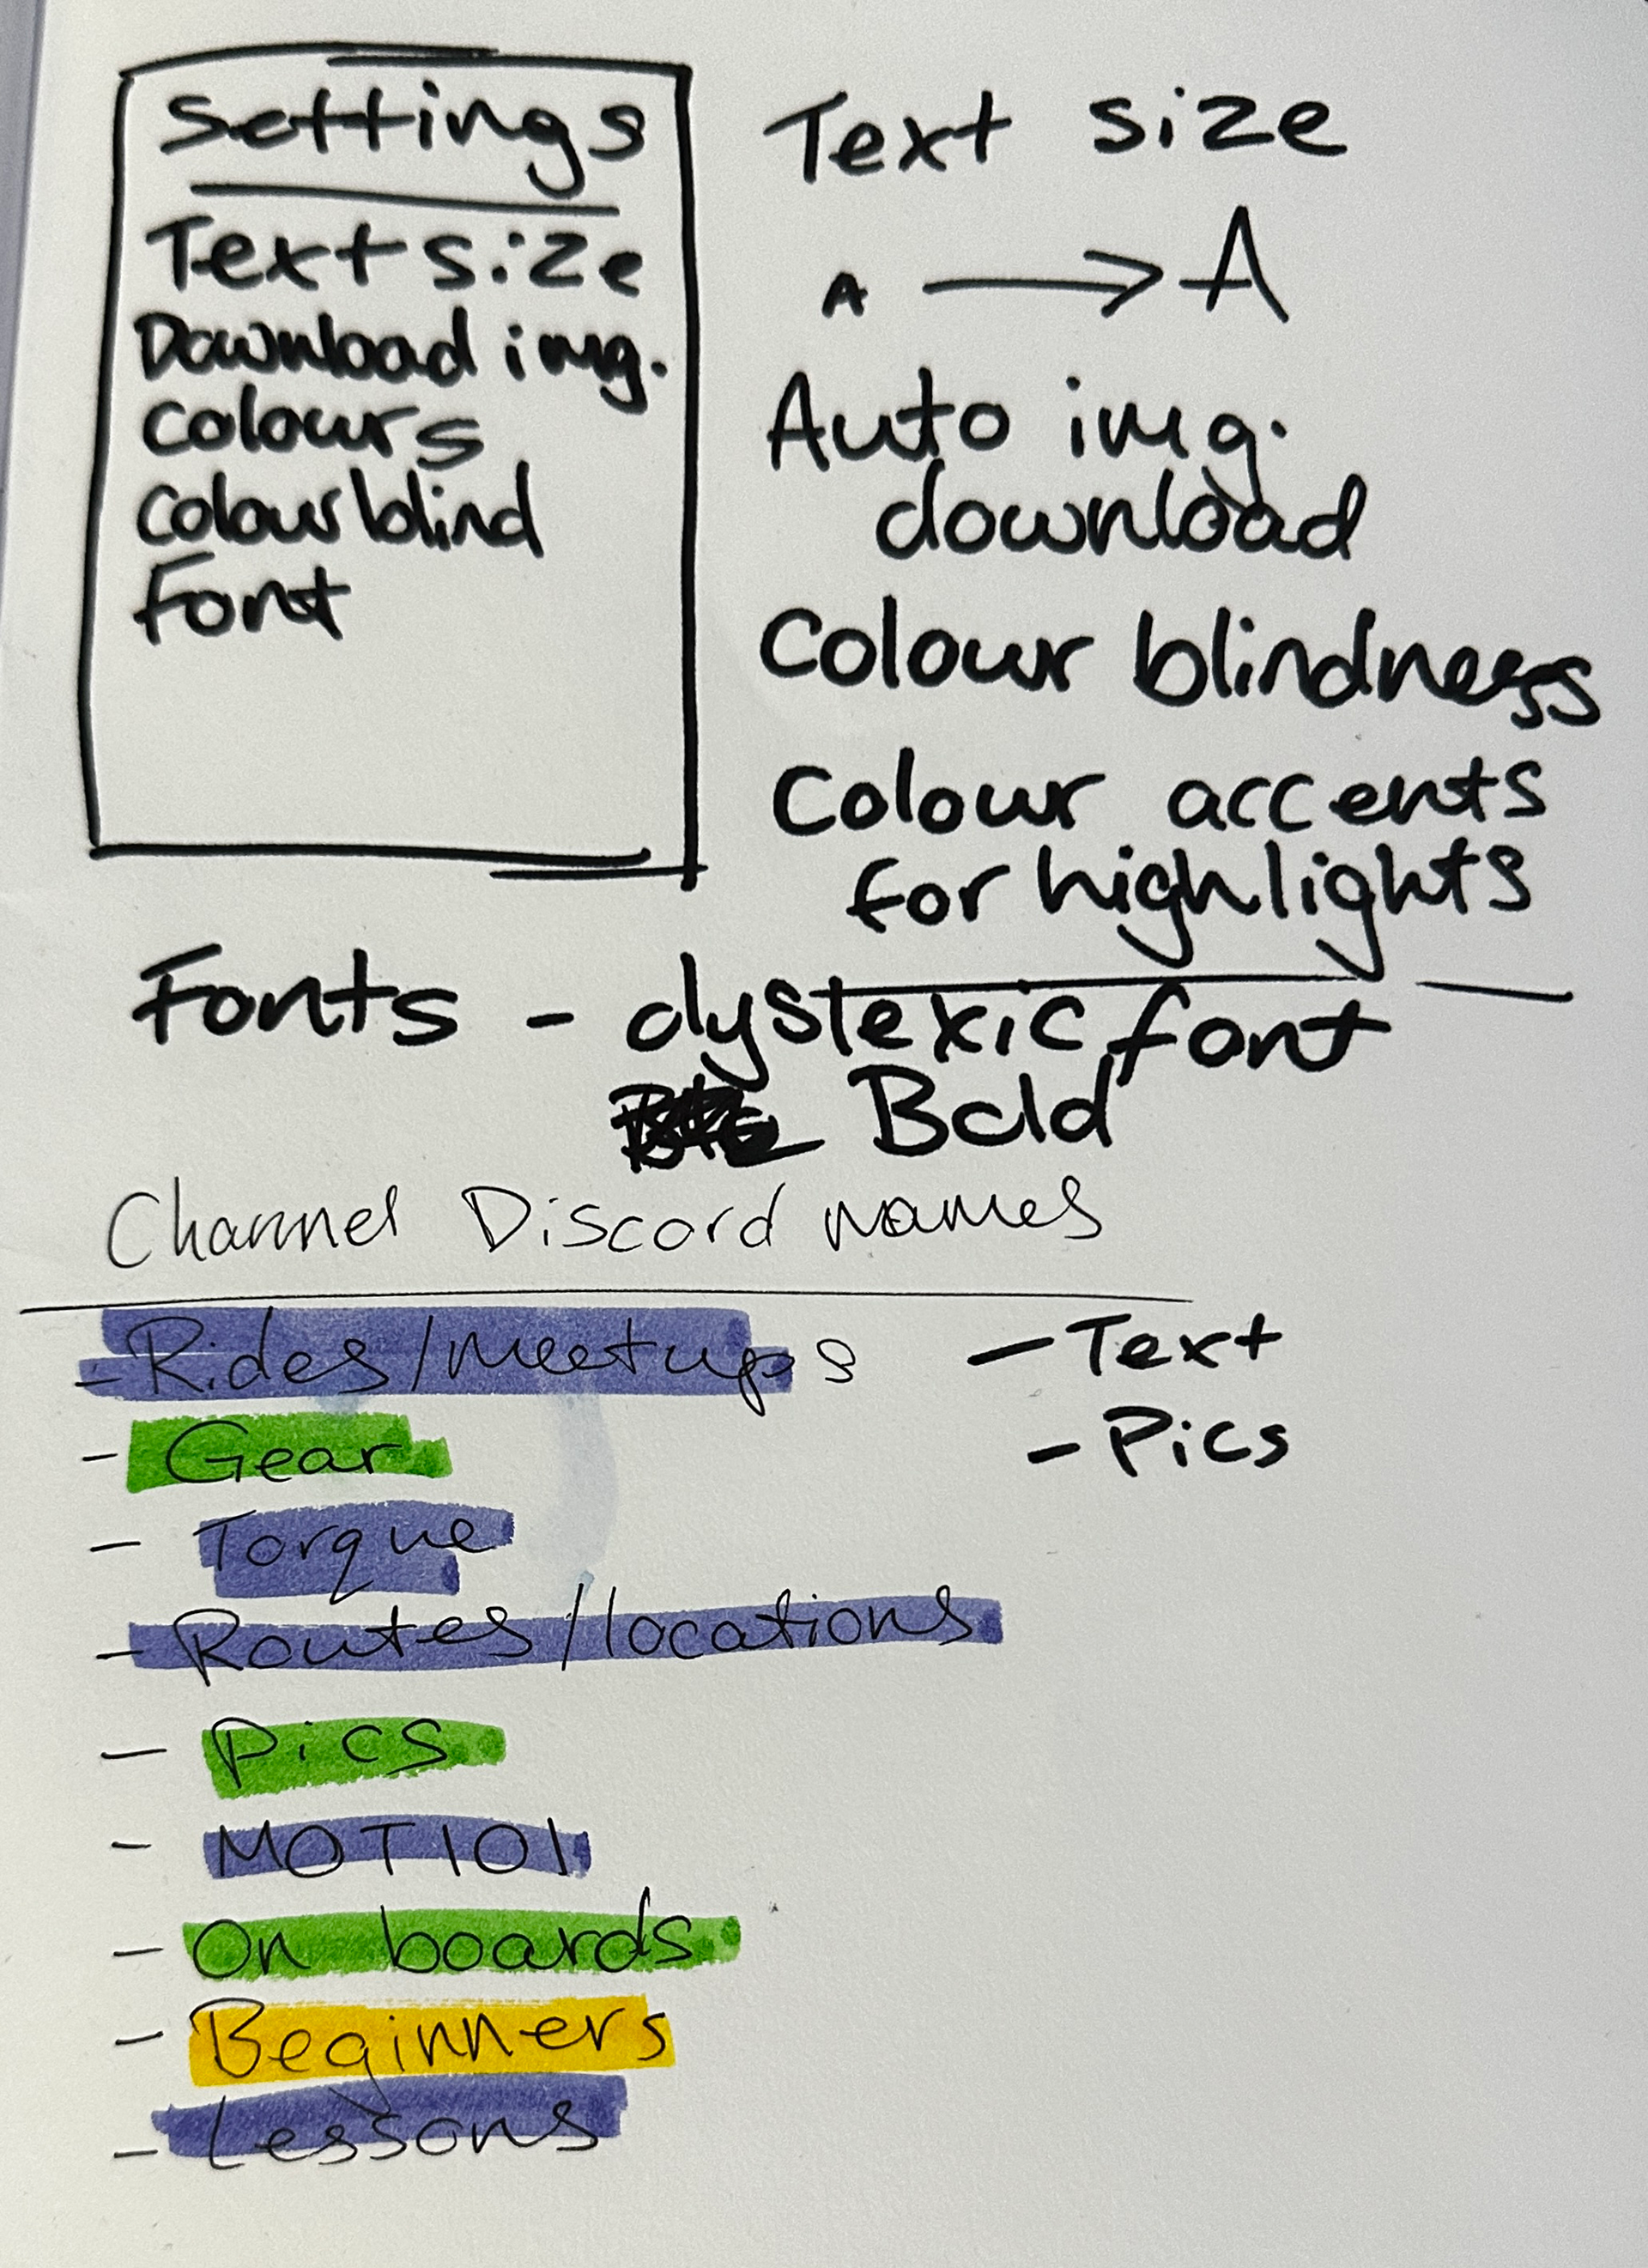 Settings
Text size
Download img.
Colours
Colourblind
Font
Text size
A → A
Auto img.
download
Colour blindness
Colour accents
for highlights
Fonts - dyslexic font
Bold
Channel Discord names
- Rides/meetups
- Gear
- Torque
- Routes/locations
- Pics
- MOT101
- On boards
- Beginners
- Lessons
- Text
- Pics